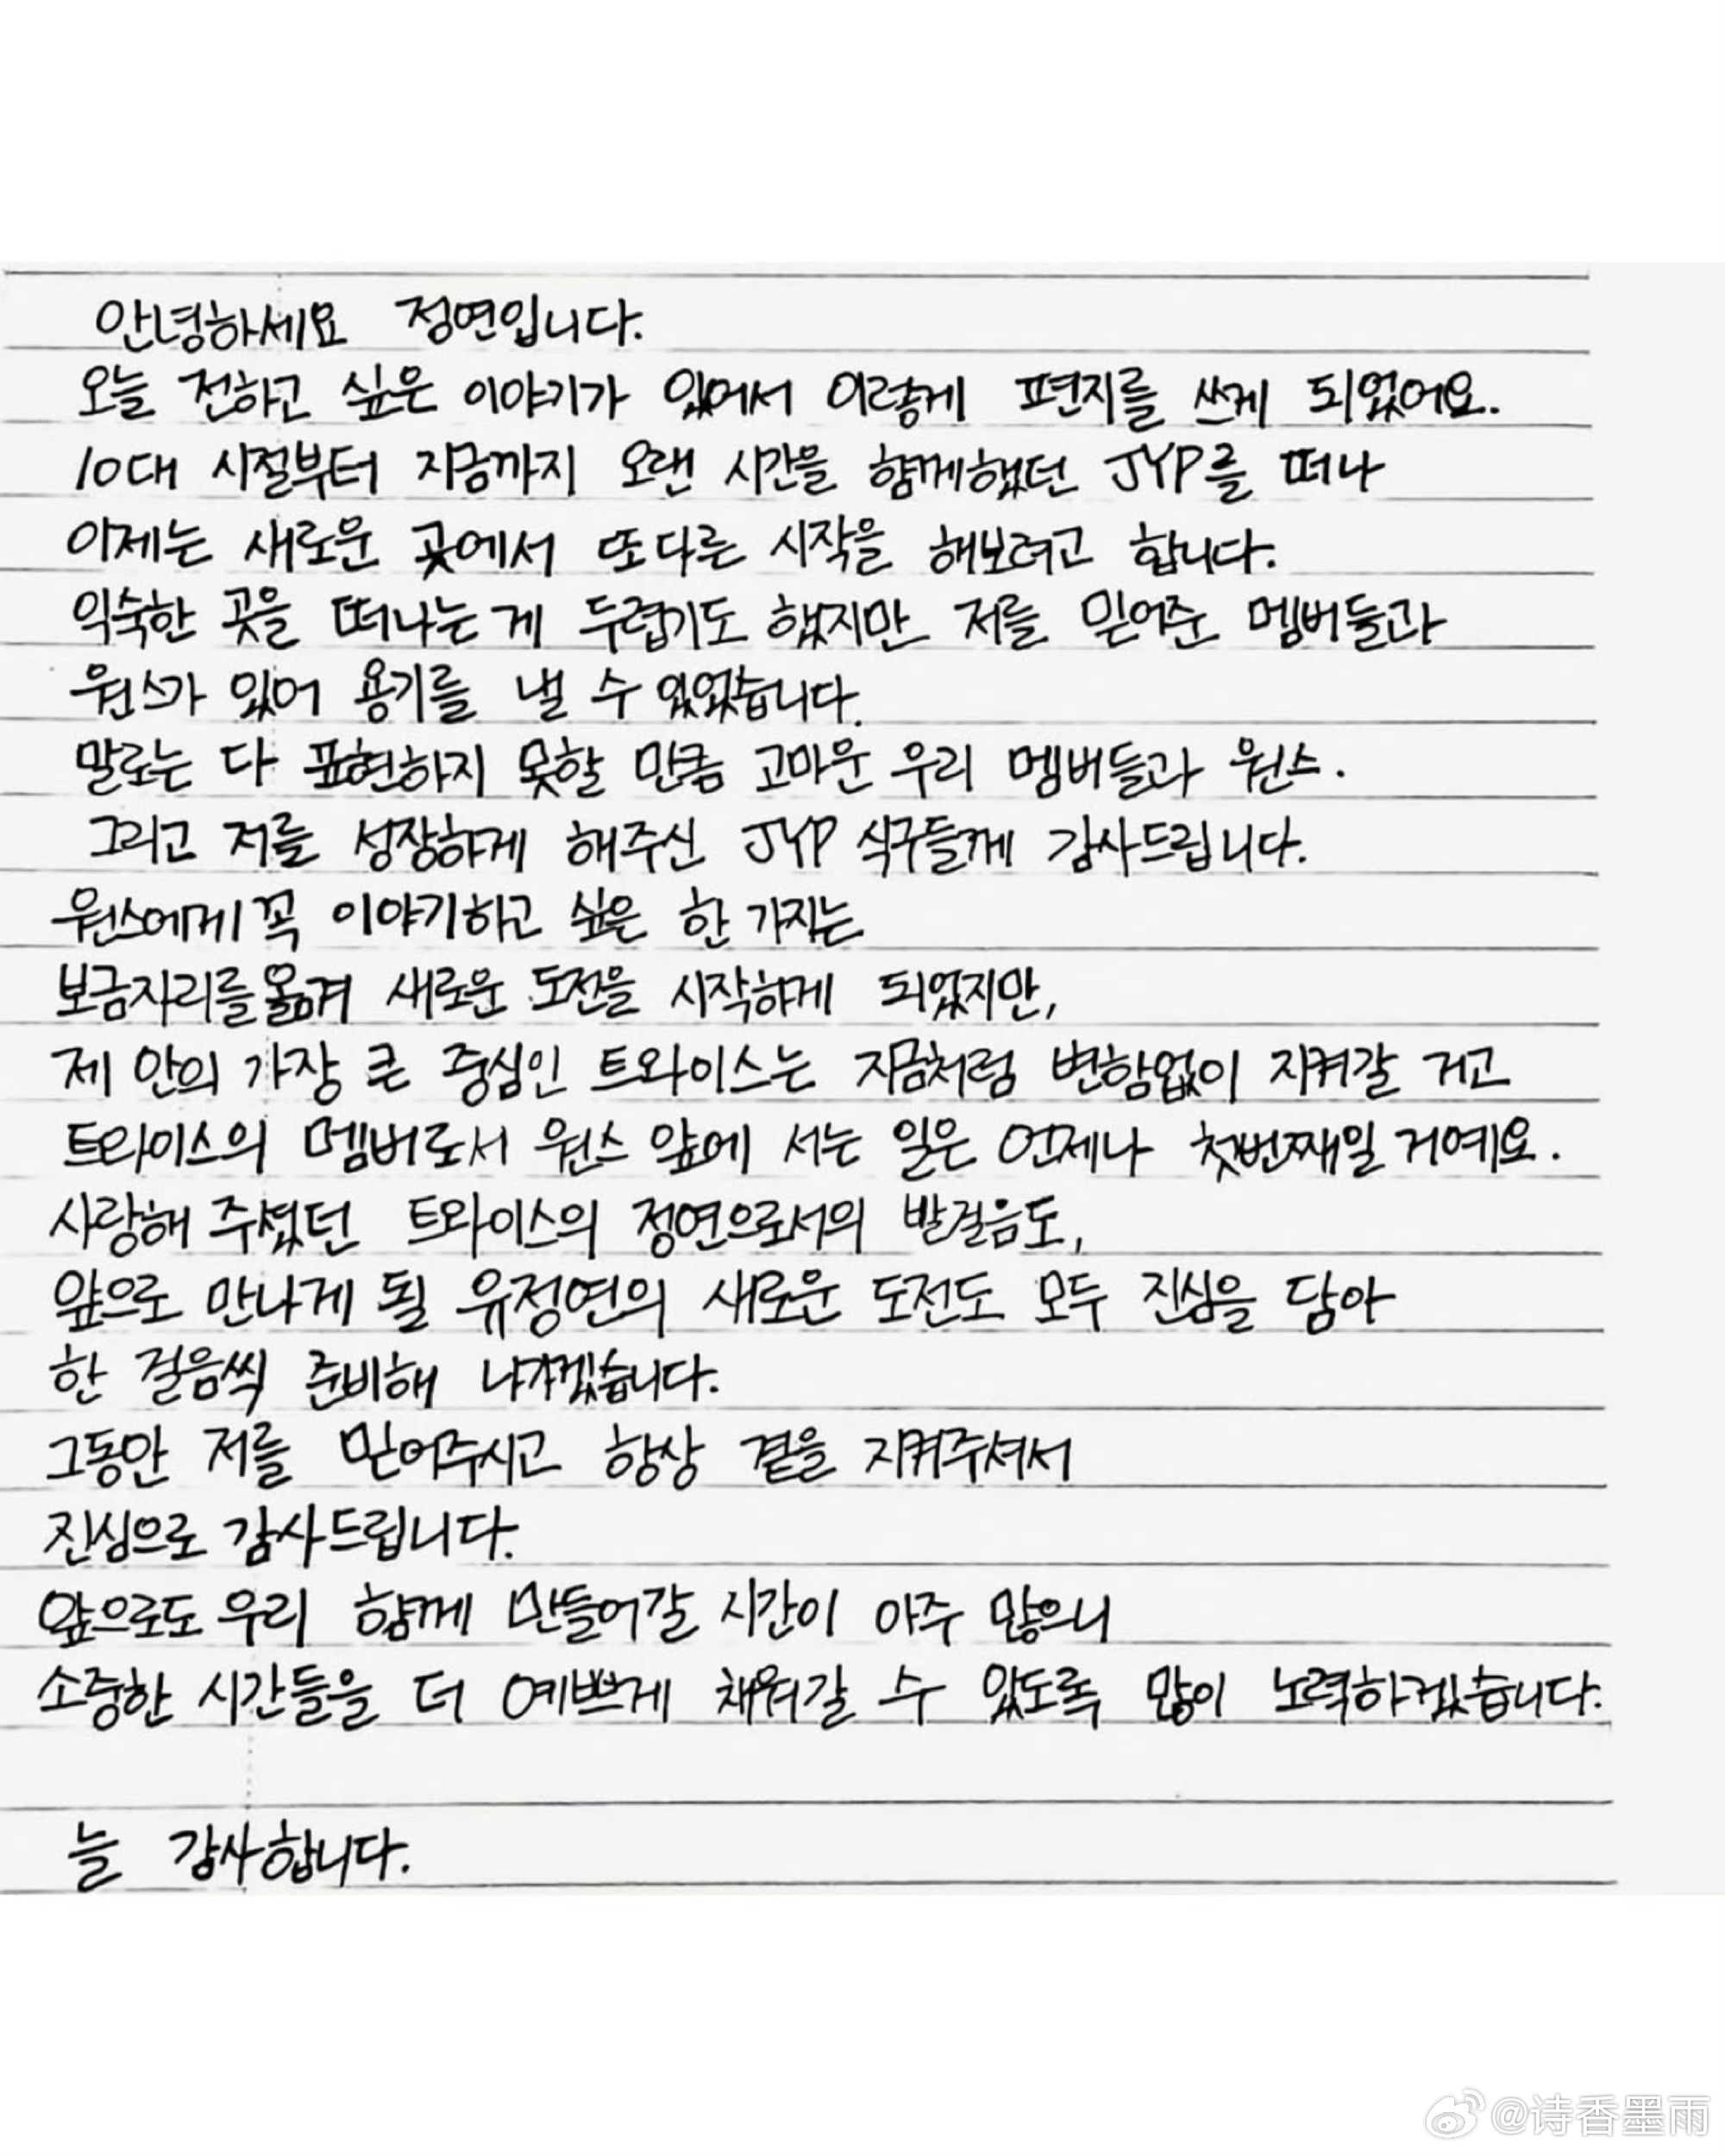 안녕하세요 정연입니다.
오늘 전하고 싶은 이야기가 있어서 이렇게 편지를 쓰게 되었어요.
10대 시절부터 지금까지 오랜 시간을 함께했던 JYP를 떠나
이제는 새로운 곳에서 또다른 시작을 해보려고 합니다.
익숙한 곳을 떠나는게 두렵기도 했지만 저를 믿어준 멤버들과
원스가 있어 용기를 낼 수 있었습니다.
말로는 다 표현하지 못할 만큼 고마운 우리 멤버들과 원스.
그리고 저를 성장하게 해주신 JYP 식구들께 감사드립니다.
원스에게 꼭 이야기하고 싶은 한 가지는
보금자리를 옮겨 새로운 도전을 시작하게 되었지만,
제 안의 가장 큰 중심인 트와이스는 지금처럼 변함없이 지켜갈 거고
트와이스의 멤버로서 원스 앞에 서는 일은 언제나 첫번째일 거예요.
사랑해 주셨던 트와이스의 정연으로서의 발걸음도,
앞으로 만나게 될 유정연의 새로운 도전도 모두 진심을 담아
한 걸음씩 준비해 나가겠습니다.
그동안 저를 믿어주시고 항상 곁을 지켜주셔서
진심으로 감사드립니다.
앞으로도 우리 함께 만들어갈 시간이 아주 많으니
소중한 시간들을 더 예쁘게 채워갈 수 있도록 많이 노력하겠습니다.
늘 감사합니다.
@诗香墨雨